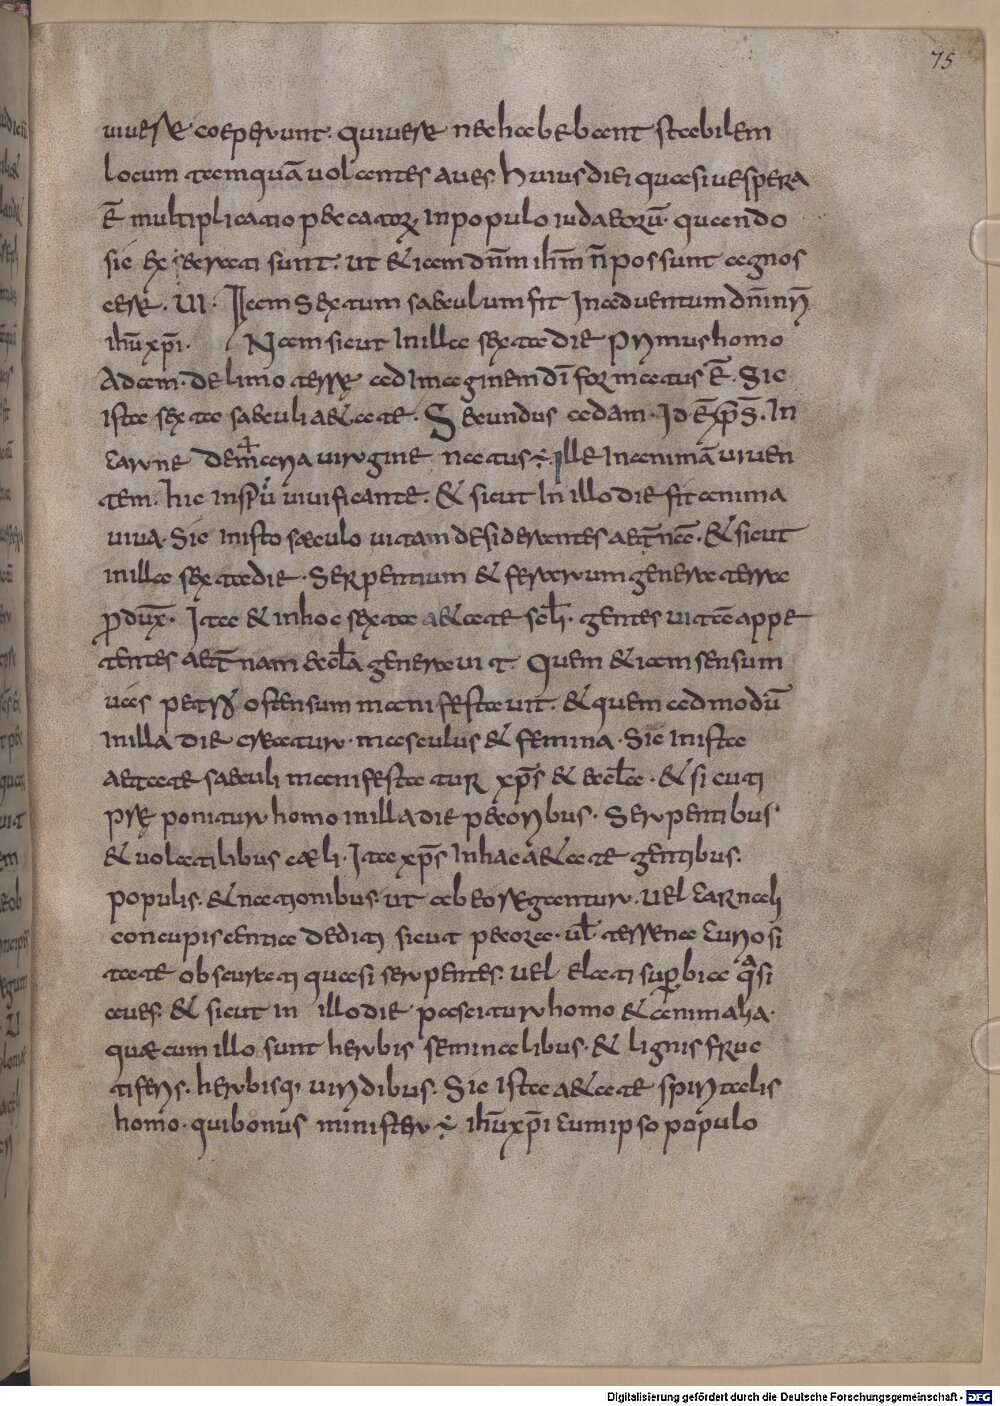 75
uiuere coeperunt. qui uere nec habebant stabilem
locum tamquā uolantes aues. huius diei quasi uespera
ē multiplicatio peccatoꝝ in populo iudaeorū. quando
sic excecati sunt. ut etiam dn̄m ih̄m n̄ possunt agnos
cere. VI. Iam sextum saeculum fit In aduentum dn̄i nr̄i
ih̄u xp̄i. Nam sicut In illa sexta die primus homo
Adam. de limo terrę ad Imaginem dī formatus ē. Sic
Ista sexta saeculi aetate. Secundus adam. Id ē xp̄s. In
carne de maria uirgine natus ÷ ille In animā uiuen
tem. hic in sp̄u uiuificante. et sicut In illo die fit anima
uiua. Sic in isto sæculo uitam desiderantes aet̄nā. et sicut
in illa sexta die. Serpentium et ferarum genera terra
ꝓdux̄. Ita et in hoc sexta aetate scl̄i. gentes uitā appe
tentes aet̄nam eccl̄a generauit. Quem etiam sensum
uas petri ostensum manifestauit. et quem ad modū
in illa die creatur. masculus et femina. Sic in ista
aetate saeculi manifestatur xp̄s et eccl̄a. et sicuti
pręponitur homo in illa die pecoribus. Serpentibus
et uolatilibus cæli. Ita xp̄s In hac aetate gentibus.
populis. et nationibus. ut ab eo regantur. uel carnali
concupiscentia dediti sicut pecora. ul̄ terrena curiosi
tate obscurati quasi serpentes. uel elati suꝑbia qͣsi
aues. et sicut in illo die pascitur homo et animalia.
quæ cum illo sunt herbis seminalibus. et lignis fruc
tiferis. herbisq; uiridibus. Sic Ista aetate spiritalis
homo. qui bonus minister ÷ ih̄u xp̄i cum ipso populo
Digitalisierung gefördert durch die Deutsche Forschungsgemeinschaft - DFG